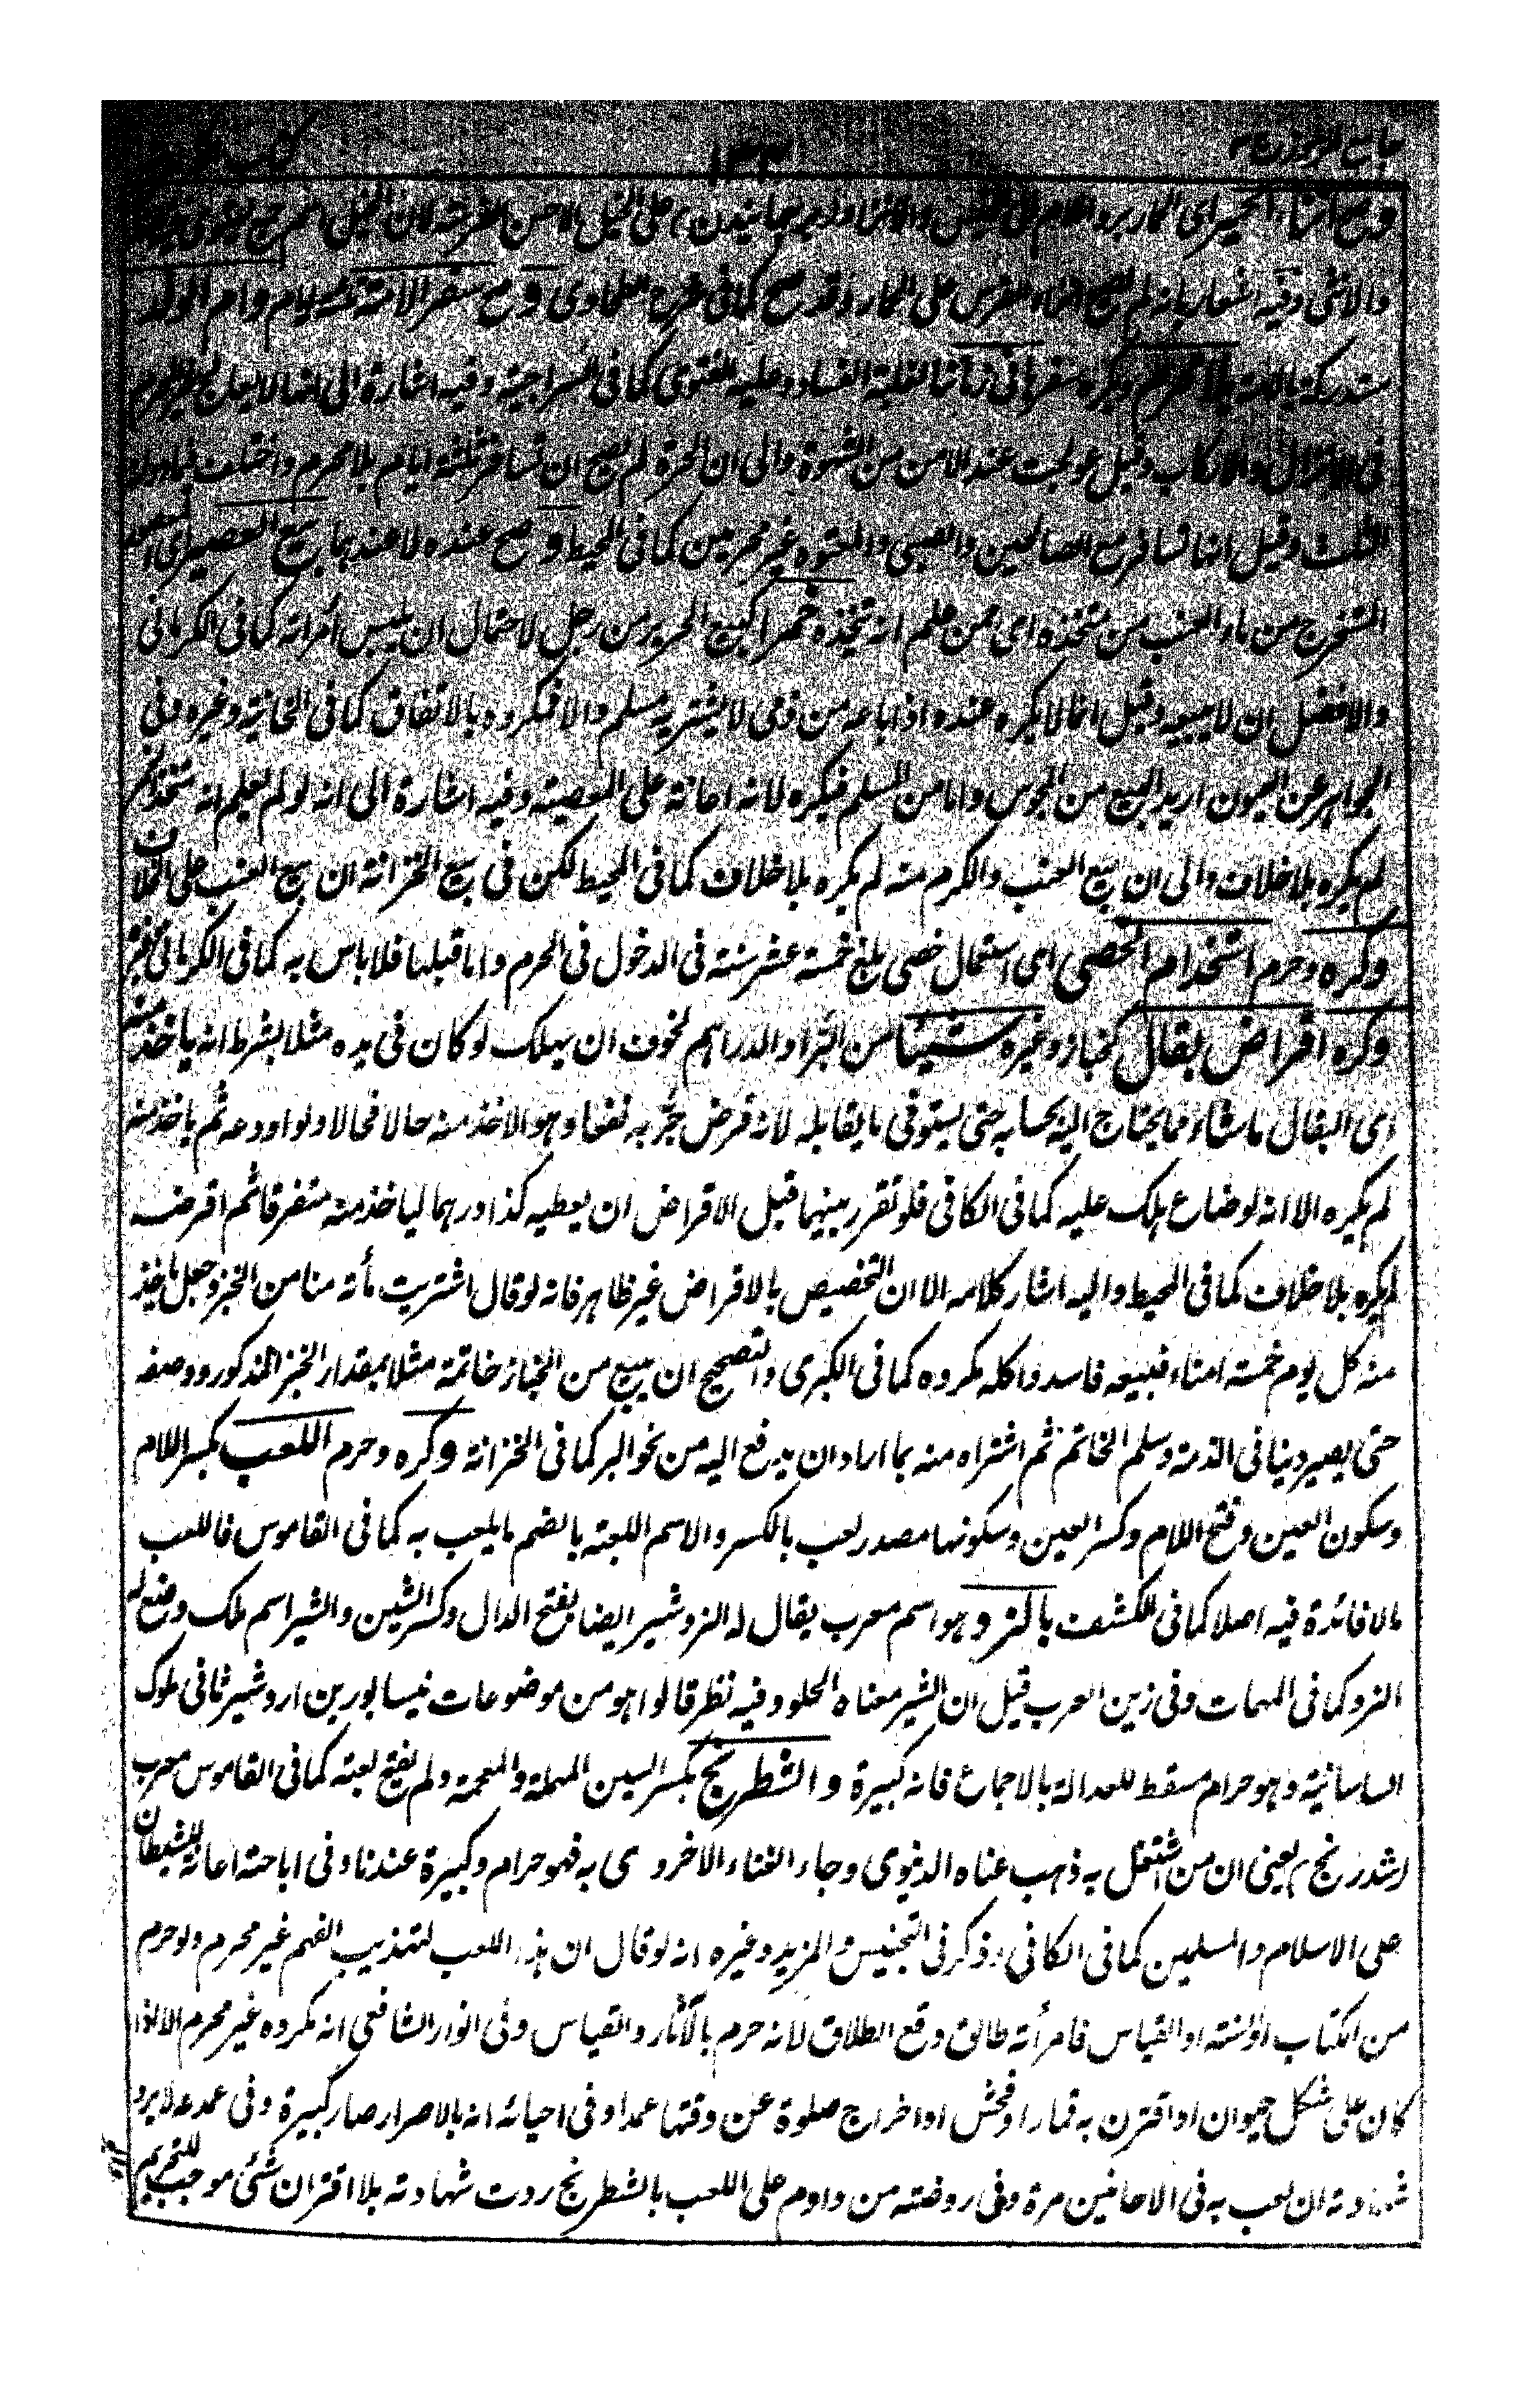 جامع الرموز ج ٢
وصح انزاء الحمير اى الحمار على الخيل لان
والانثى وفيه اشعار بانه لم يصح انزاء الفرس على الحمار وقد صح كما فى شرح الطحاوى وصح سفر الامة وام الولد
مستدركة بالامة بلا محرم ويكره سفرها فى زماننا لغلبة الفساد وعليه الفتوى كما فى السراجية وفيه اشارة الى انها لا يعالجها غير المحرم
فى الانزال والاركاب وقيل عولجت عند الامن من الشهوة والى ان الحرة لم يصح ان تسافر ثلثة ايام بلا محرم واختلف فيما دون
الثلث وقيل انها تسافر مع الصالحين والصبى والمعتوه غير محرمين كما فى المحيط وصح عنده لا عندهما بيع العصير اى المعصور
المستخرج من ماء العنب من متخذه اى ممن علم انه يتخذه خمرا كبيع الحرير من رجل لاحتمال ان يلبس امرأته كما فى الكرمانى
والافضل ان لا يبيعه وقيل انما لا يكره عنده اذا باعه من ذمى لا يشتريه مسلم والا فمكروه بالاتفاق كما فى الخانية وغيره وفى
الجواهر عن العيون اريد البيع من المجوس واما من المسلم فيكره لانه اعانة على المعصية وفيه اشارة الى انه لو لم يعلم انه يتخذه خمرا
لم يكره بلا خلاف والى ان بيع العنب والكرم منه لم يكره بلا خلاف كما فى المحيط لكن فى بيع الخزانة ان بيع العنب على الخلاف
وكره وحرم استخدام الخصى اى استعمال خصى بلغ خمسة عشر سنة فى الدخول فى الحرم واما قبلها فلا باس به كما فى الكرمانى وغيره
وكره اقراض بقال كخباز وغيره شيئا من البر او الدراهم لخوف ان يهلك لو كان فى يده مثلا بشرط انه ياخذ منه
اى البقال ما شاء مما يحتاج اليه بحسابه حتى يستوفى ما يقابله لانه قرض جر به نفعا وهو الاخذ منه حالا فحالا ولو اودعه ثم ياخذ منه
لم يكره الا انه لو ضاع هلك عليه كما فى الكافى فلو تقرر بينهما قبل الاقراض ان يعطيه كذا درهما لياخذ منه متفرقا ثم اقرضه
لم يكره بلا خلاف كما فى المحيط واليه اشار كلامه الا ان التخصيص بالاقراض غير ظاهر فانه لو قال اشتريت مأة منا من الخبز وجعل ياخذ
منه كل يوم خمسة امناء فبيعه فاسد واكله مكروه كما فى الكبرى والتصحيح ان يبيع من الخباز خاتمة مثلا بمقدار الخبز المذكور ووصفه
حتى يصير دينا فى الذمة وسلم الخاتم ثم اشتراه منه بما اراد ان يدفع اليه من نحو البر كما فى الخزانة وكره وحرم اللعب بكسر اللام
وسكون العين وفتح اللام وكسر العين وسكونها مصدر لعب بالكسر والاسم اللعبة بالضم ما يلعب به كما فى القاموس فاللعب
ما لا فائدة فيه اصلا كما فى الكشف بالنرد وهو اسم معرب يقال له النردشير ايضا بفتح الدال وكسر الشين والشير اسم ملك وضع له
النرد كما فى المهمات وفى زين العرب قيل ان الشير معناه الحلو وفيه نظر قالوا هو من موضوعات نيسابور بن اردشير ثانى ملوك
الساسانية وهو حرام مسقط للعدالة بالاجماع فانه كبيرة والشطرنج بكسر السين المهملة والمعجمة ولم يفتح لعبة كما فى القاموس معرب
شدرنج يعنى ان من اشتغل به ذهب عناه الدنيوى وجاء العناء الاخروى به فهو حرام وكبيرة عندنا وفى اباحته اعانة للشيطان
على الاسلام والمسلمين كما فى الكافى وذكر فى التجنيس والمزيد وغيره انه لو قال ان هذا اللعب لتهذيب الفهم غير محرم ولو حرم
من الكتاب او السنة او القياس فامرأته طالق وقع الطلاق لانه حرم بالآثار والقياس وفى انوار الشافعى انه مكروه غير محرم الا اذا
كان على شكل حيوان او اقترن به قمار او فحش او اخراج صلوة عن وقتها عمدا وفى احيائه انه بالاصرار صار كبيرة وفى عمدعه لا يرد
شهادته ان لعب به فى الاحايين مرة وفى روضته من داوم على اللعب بالشطرنج ردت شهادته بلا اقتران شئ موجب للتحريم